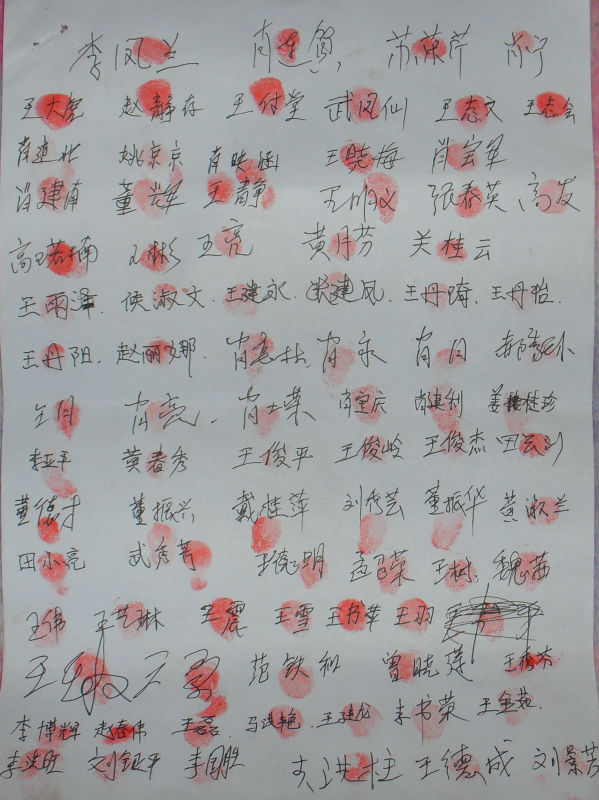 李凤兰 肖 贺 苏荣芹 肖宁
王大虎 赵静存 王付堂 武凤仙 王志文 王志会
肖建壮 姚京京 肖映涵 王晓梅 肖宝军
肖建南 董兴军 王静 王明义 张春英 高友
高王若楠 王彬 王亮 黄月芳 关桂云
王雨泽 侯淑文 王建永 建凤 王丹琦 王丹怡
王丹阳 赵丽娜 肖志林 肖永 肖月
王月 肖亮 肖士荣 肖宝庆 肖建利 姜桂珍
李亚平 黄春秀 王俊平 王俊岭 王俊杰 田
董德才 董振兴 戴桂萍 刘秀芸 董振华 黄淑兰
田小亮 武秀芳 王德明 孟召荣 王树 魏茜
王伟 王艺琳 王震 王雪 王书苹 王羽
王 范铁和 曾晓莲 王秀芬
李博辉 赵春伟 王磊 马洪艳 王建龙 李书荣 王金茹
李 刘银平 李国胜 洪柱 王德成 刘景芳